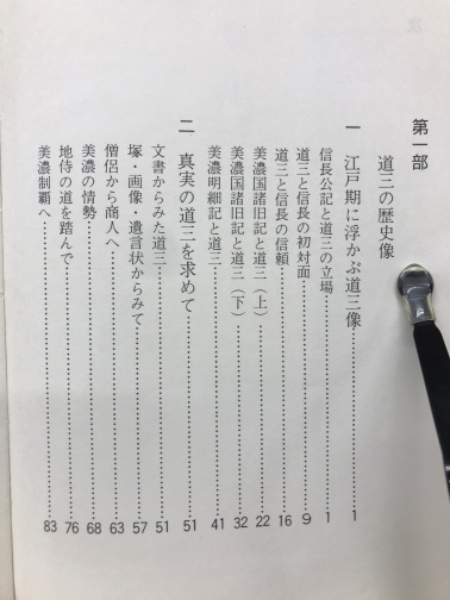 第一部
道三の歴史像
一 江戸期に浮かぶ道三像……………1
信長公記と道三の立場……………1
道三と信長の初対面……………9
道三と信長の信頼……………16
美濃国諸旧記と道三(上)……………22
美濃国諸旧記と道三(下)……………32
美濃明細記と道三……………41
二 真実の道三を求めて……………51
文書からみた道三……………51
塚・画像・遺言状からみて……………57
僧侶から商人へ……………63
美濃の情勢……………68
地侍の道を踏んで……………76
美濃制覇へ……………83